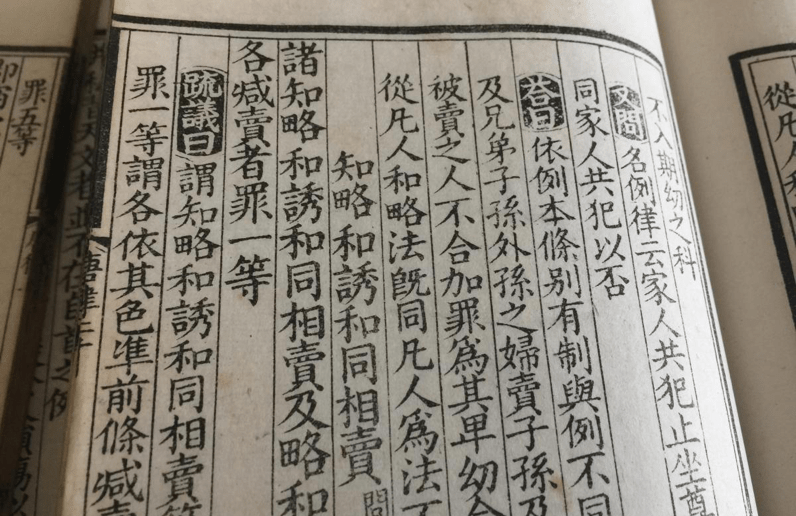 從凡人和
不入期幼之科
又問名例律云家人共犯止坐尊
同家人共犯以否
荅曰依例本條別有制與例不同
及兄弟子孫外孫之婦賣子孫及
被賣之人不合加罪爲其卑幼合
從凡人和略法既同凡人爲法不
知略和誘和同相賣問
諸知略和誘和同相賣及略和
各減賣者罪一等
疏議曰謂知略和誘和同相賣等
罪一等謂各依其色準前條減賣
唐律二十
罪五等